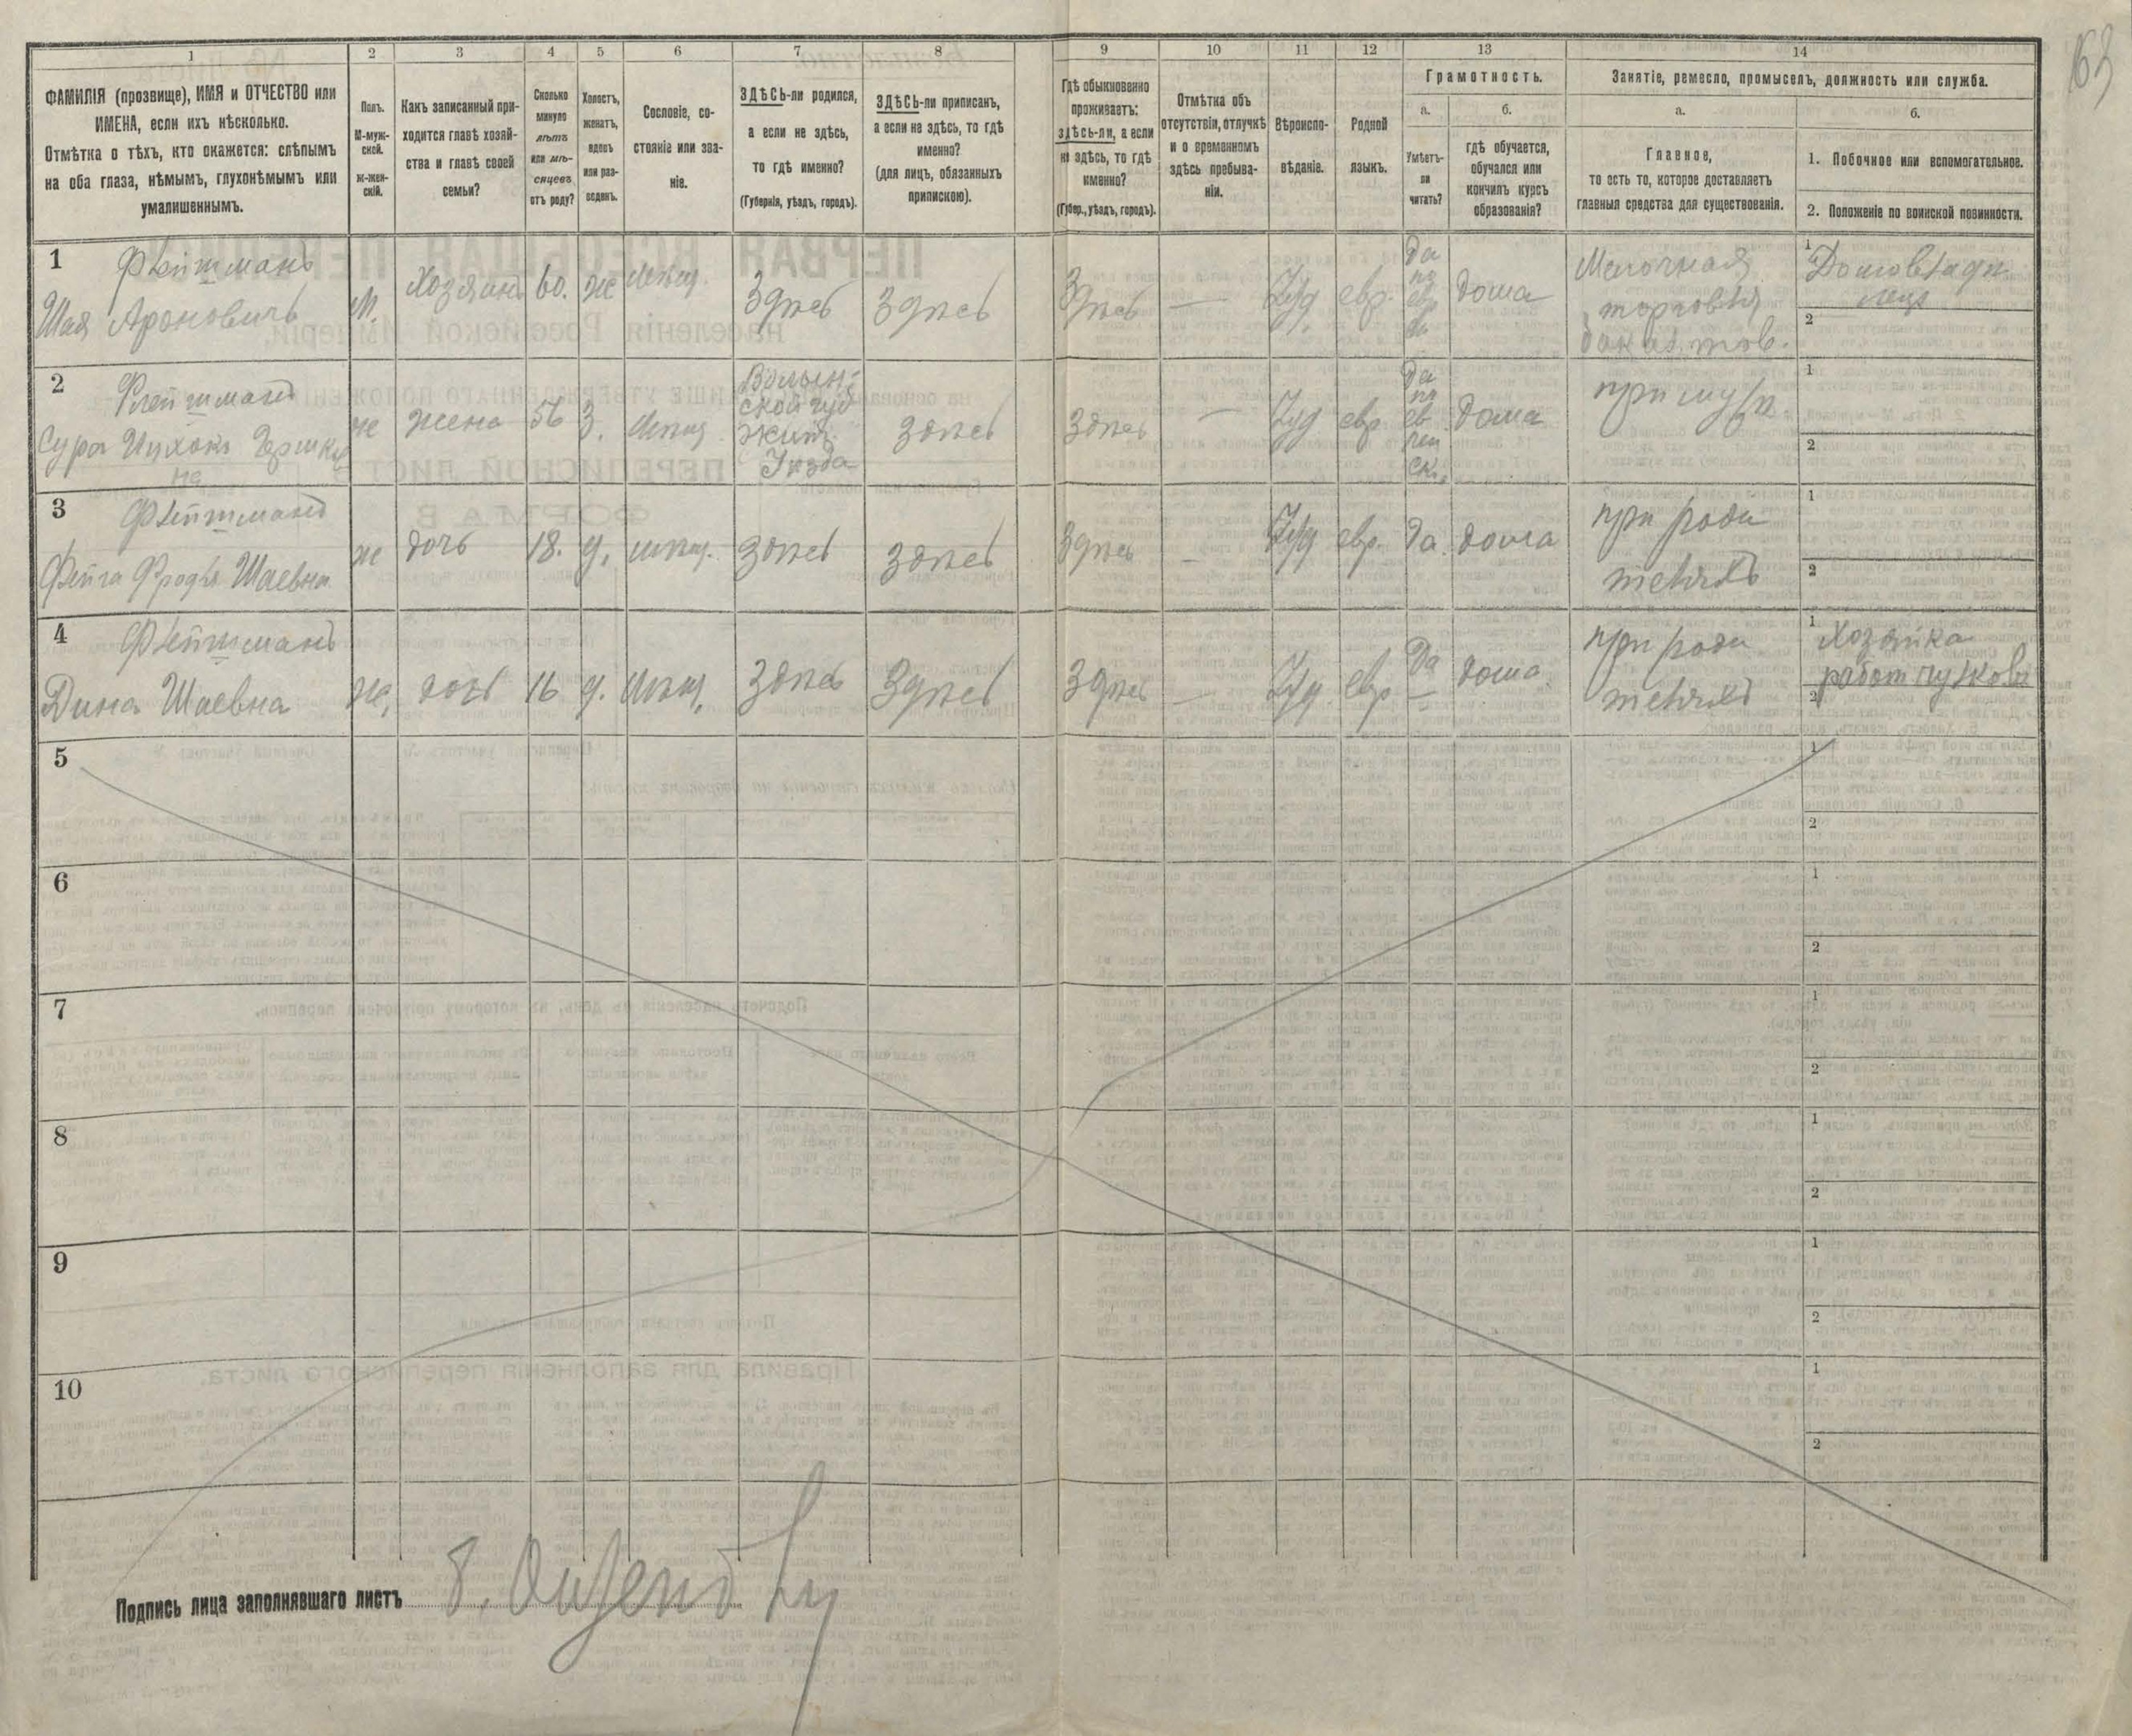 163
1
ФАМИЛІЯ (прозвище), ИМЯ и ОТЧЕСТВО или
ИМЕНА, если ихъ нѣсколько.
Отмѣтка о тѣхъ, кто окажется: слѣпымъ
на оба глаза, нѣмымъ, глухонѣмымъ или
умалишеннымъ.
2
Полъ.
М-муж-
ской.
ж-жен-
скій.
3
Какъ записанный при-
ходится главѣ хозяй-
ства и главѣ своей
семьи?
4
Сколько
минуло
лѣтъ
или мѣ-
сяцевъ
отъ роду?
5
Холостъ,
женатъ,
вдовъ
или раз-
веденъ.
6
Сословіе, со-
стояніе или зва-
ніе.
7
ЗДѢСЬ-ли родился,
а если не здѣсь,
то гдѣ именно?
(Губернія, уѣздъ, городъ).
8
ЗДѢСЬ-ли приписанъ,
а если не здѣсь, то гдѣ
именно?
(для лицъ, обязанныхъ
припискою).
9
Гдѣ обыкновенно
проживаетъ:
здѣсь-ли, а если
не здѣсь, то гдѣ
именно?
(Губер., уѣздъ, городъ).
10
Отмѣтка объ
отсутствіи, отлучкѣ
и о временномъ
здѣсь пребыва-
ніи.
11
Вѣроиспо-
вѣданіе.
12
Родной
языкъ.
13
Грамотность.
а.
Умѣетъ-
ли
читать?
б.
гдѣ обучается,
обучался или
кончилъ курсъ
образованія?
14
Занятіе, ремесло, промыселъ, должность или служба.
а.
Главное,
то есть то, которое доставляетъ
главныя средства для существованія.
б.
1. Побочное или вспомогательное.
2. Положеніе по воинской повинности.
1 Флейшманъ
Шая Ароновичъ
М.
Хозяинъ
60.
же
мѣщ.
Здѣсь
Здѣсь
Здѣсь
—
Іуд.
евр.
да
по
ев
дома
Мелочная
торговля
бакал. тов.
1 Домовладѣ
лецъ
2
2 Флейшманъ
Сура
на
же
жена
56
З.
мѣщ.
Волын-
ской губ
Жит.
Уѣзда
здѣсь
здѣсь
—
Іуд
евр
Да
по
ев
рей
ск.
дома
при мужѣ
1
2
3 Флейшманъ
Фейга Фродля Шаевна
же
дочь
18.
д.
мѣщ.
здѣсь
здѣсь
Здѣсь
—
Іуд
евр.
Да.
дома
при роди
теляхъ
1
2
4 Флейшманъ
Дина Шаевна
же,
дочь
16
д.
мѣщ.
Здѣсь
Здѣсь
Здѣсь
—
Іуд.
евр
Да
—
дома.
при роди
теляхъ
1 Хозяйка
работ чулковъ
2
5
1
2
6
1
2
7
1
2
8
1
2
9
1
2
10
1
2
Подпись лица заполнявшаго листъ